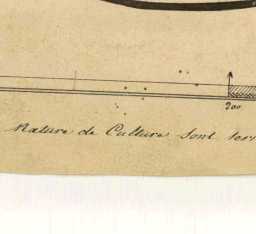 200
Nature de Culture sont